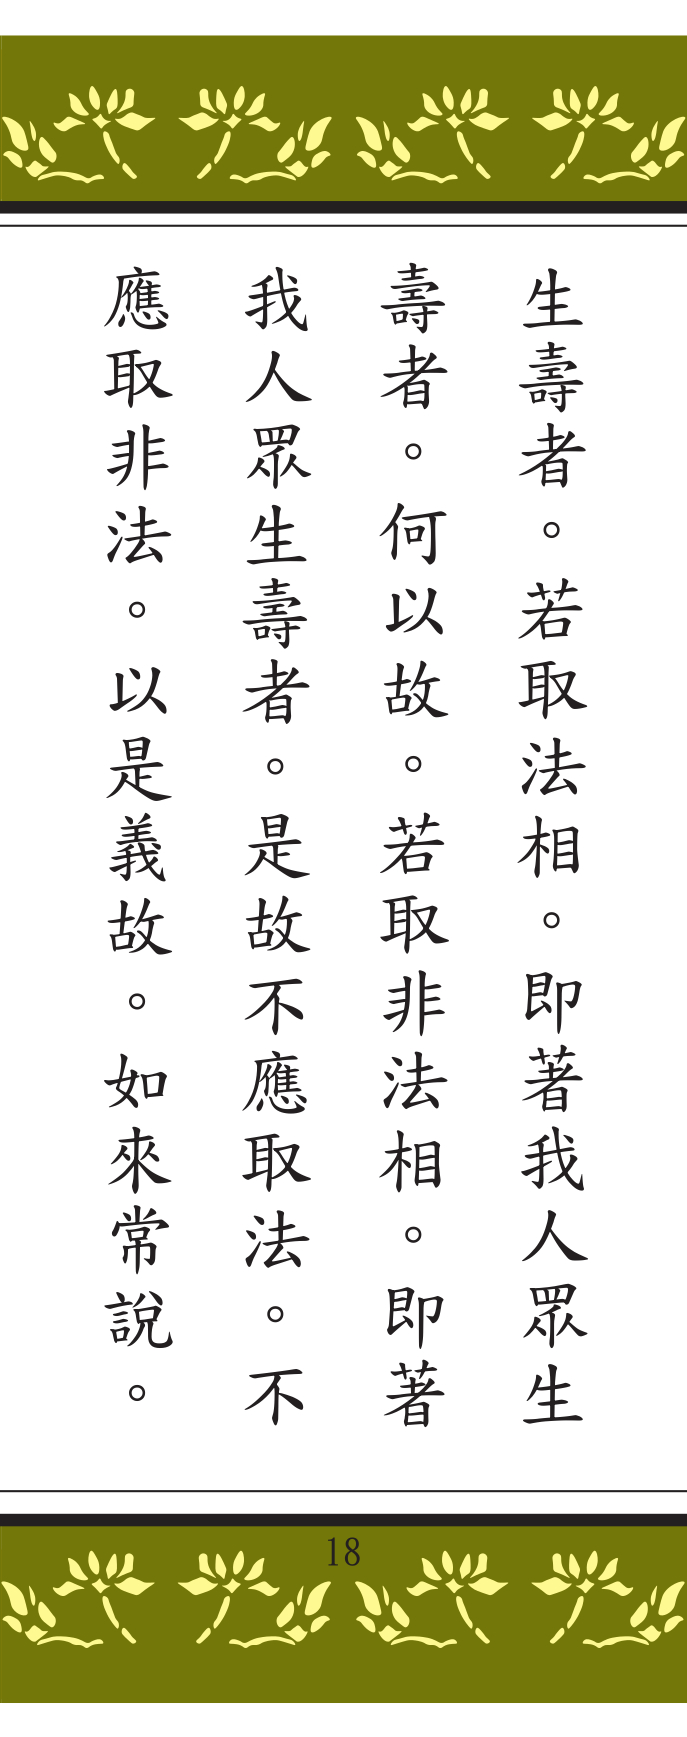 生壽者。若取法相。即著我人眾生
壽者。何以故。若取非法相。即著
我人眾生壽者。是故不應取法。不
應取非法。以是義故。如來常說。
18